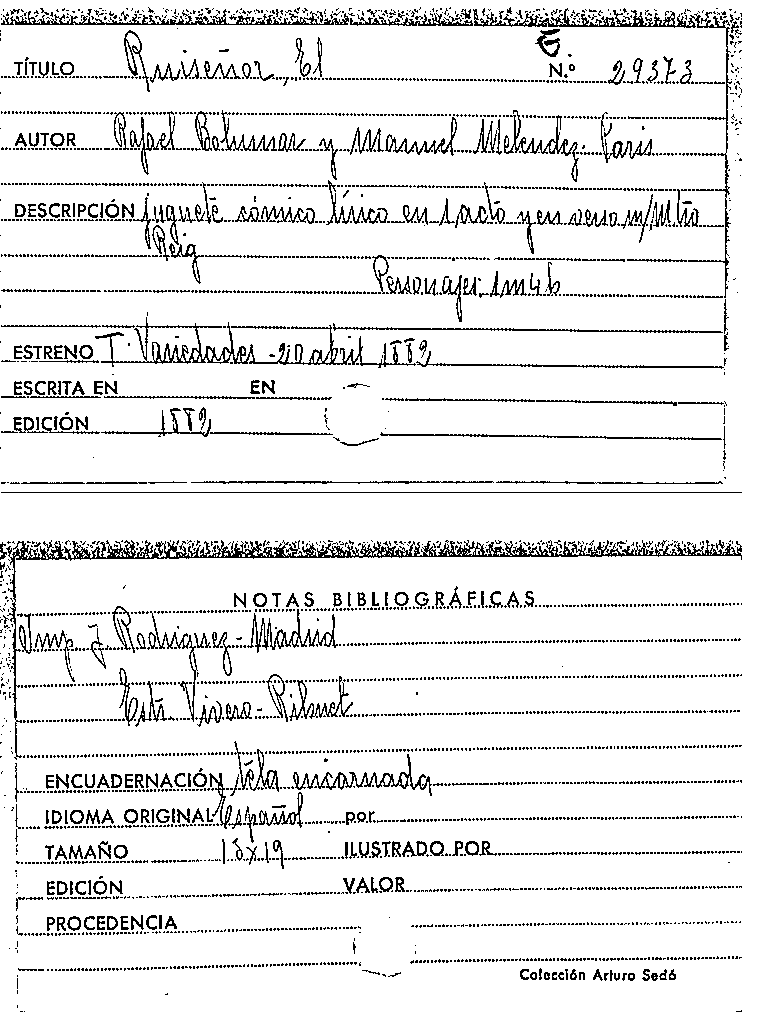 TÍTULO Ruiseñor, El N.º 29373
AUTOR Rafael Bolumar y Manuel Melendez. Paris
DESCRIPCIÓN juguete cómico lírico en 1 acto y en verso m/ Mtro
Reig
Personajes. 1m 4h
ESTRENO T. Variedades - 20 abril 1882
ESCRITA EN EN
EDICIÓN 1882
NOTAS BIBLIOGRÁFICAS
Imp J Rodriguez - Madrid
Estr. Vivero-
ENCUADERNACIÓN tela encarnada
IDIOMA ORIGINAL Español por
TAMAÑO 13x19 ILUSTRADO POR
EDICIÓN VALOR
PROCEDENCIA
Colección Arturo Sedó